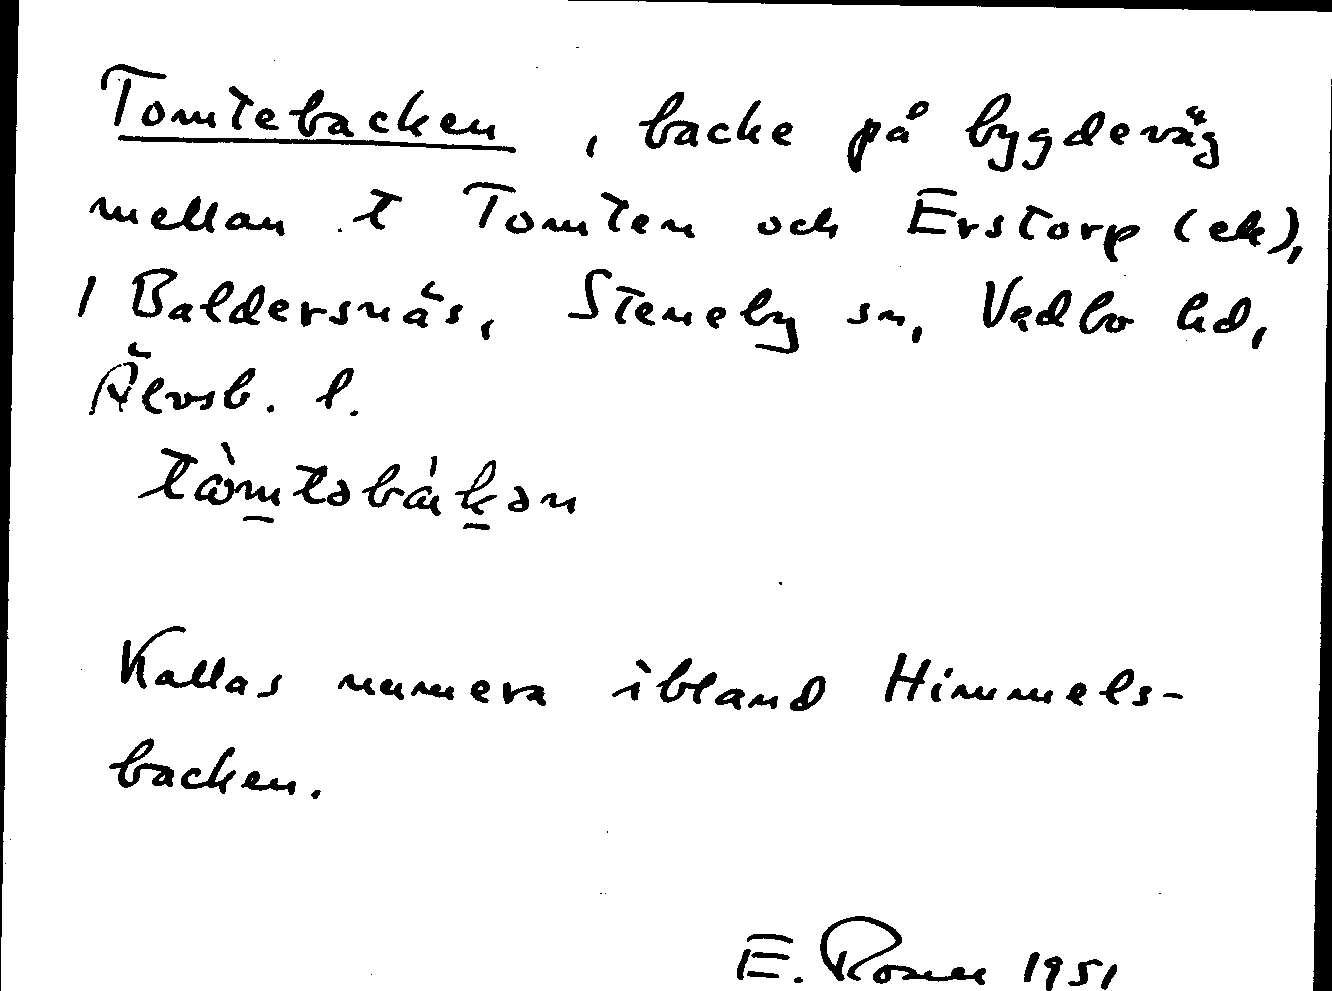 Tomtebacken, backe på bygdeväg
mellan t Tomten och Erstorp (ek),
i Baldersnäs, Steneby sn, Vedbo hd,
Älvsb. l.
tòm̲təbák̲ən
Kallas numera ibland Himmels-
backen.
E. Rosen 1951